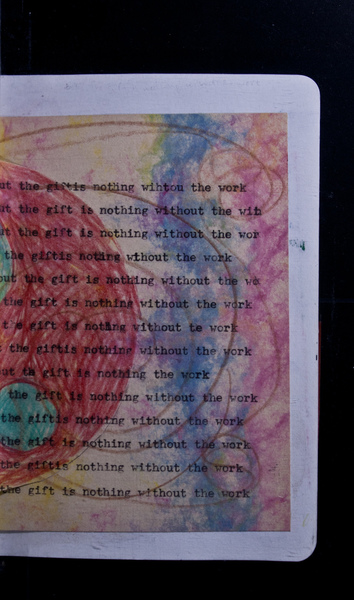 ut the giftis nothing wihtou the work
ut the gift is nothing without the wih
ut the gift is nothing without the wor
the giftis nothing without the work
out the gift is nothing without the wo
the gift is nothing without the work
t the gift is nothing without te work
t the giftis nothing without the work
ut th gift is nothing the work
the gift is nothing without the work
the giftis nothing without the work
the gift is nothing without the work
the giftis nothing without the work
the gift is nothing without the work